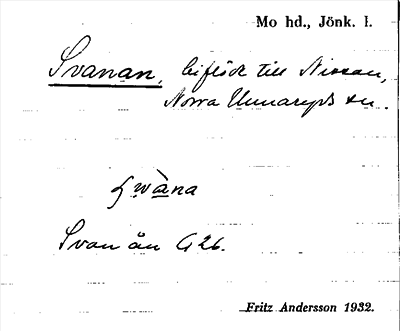 Mo hd., Jönk. l.
Svanan, biflöde till Nissan,
Norra Unnaryds sn.
swàna
Svan ån G 26.
Fritz Andersson 1932.